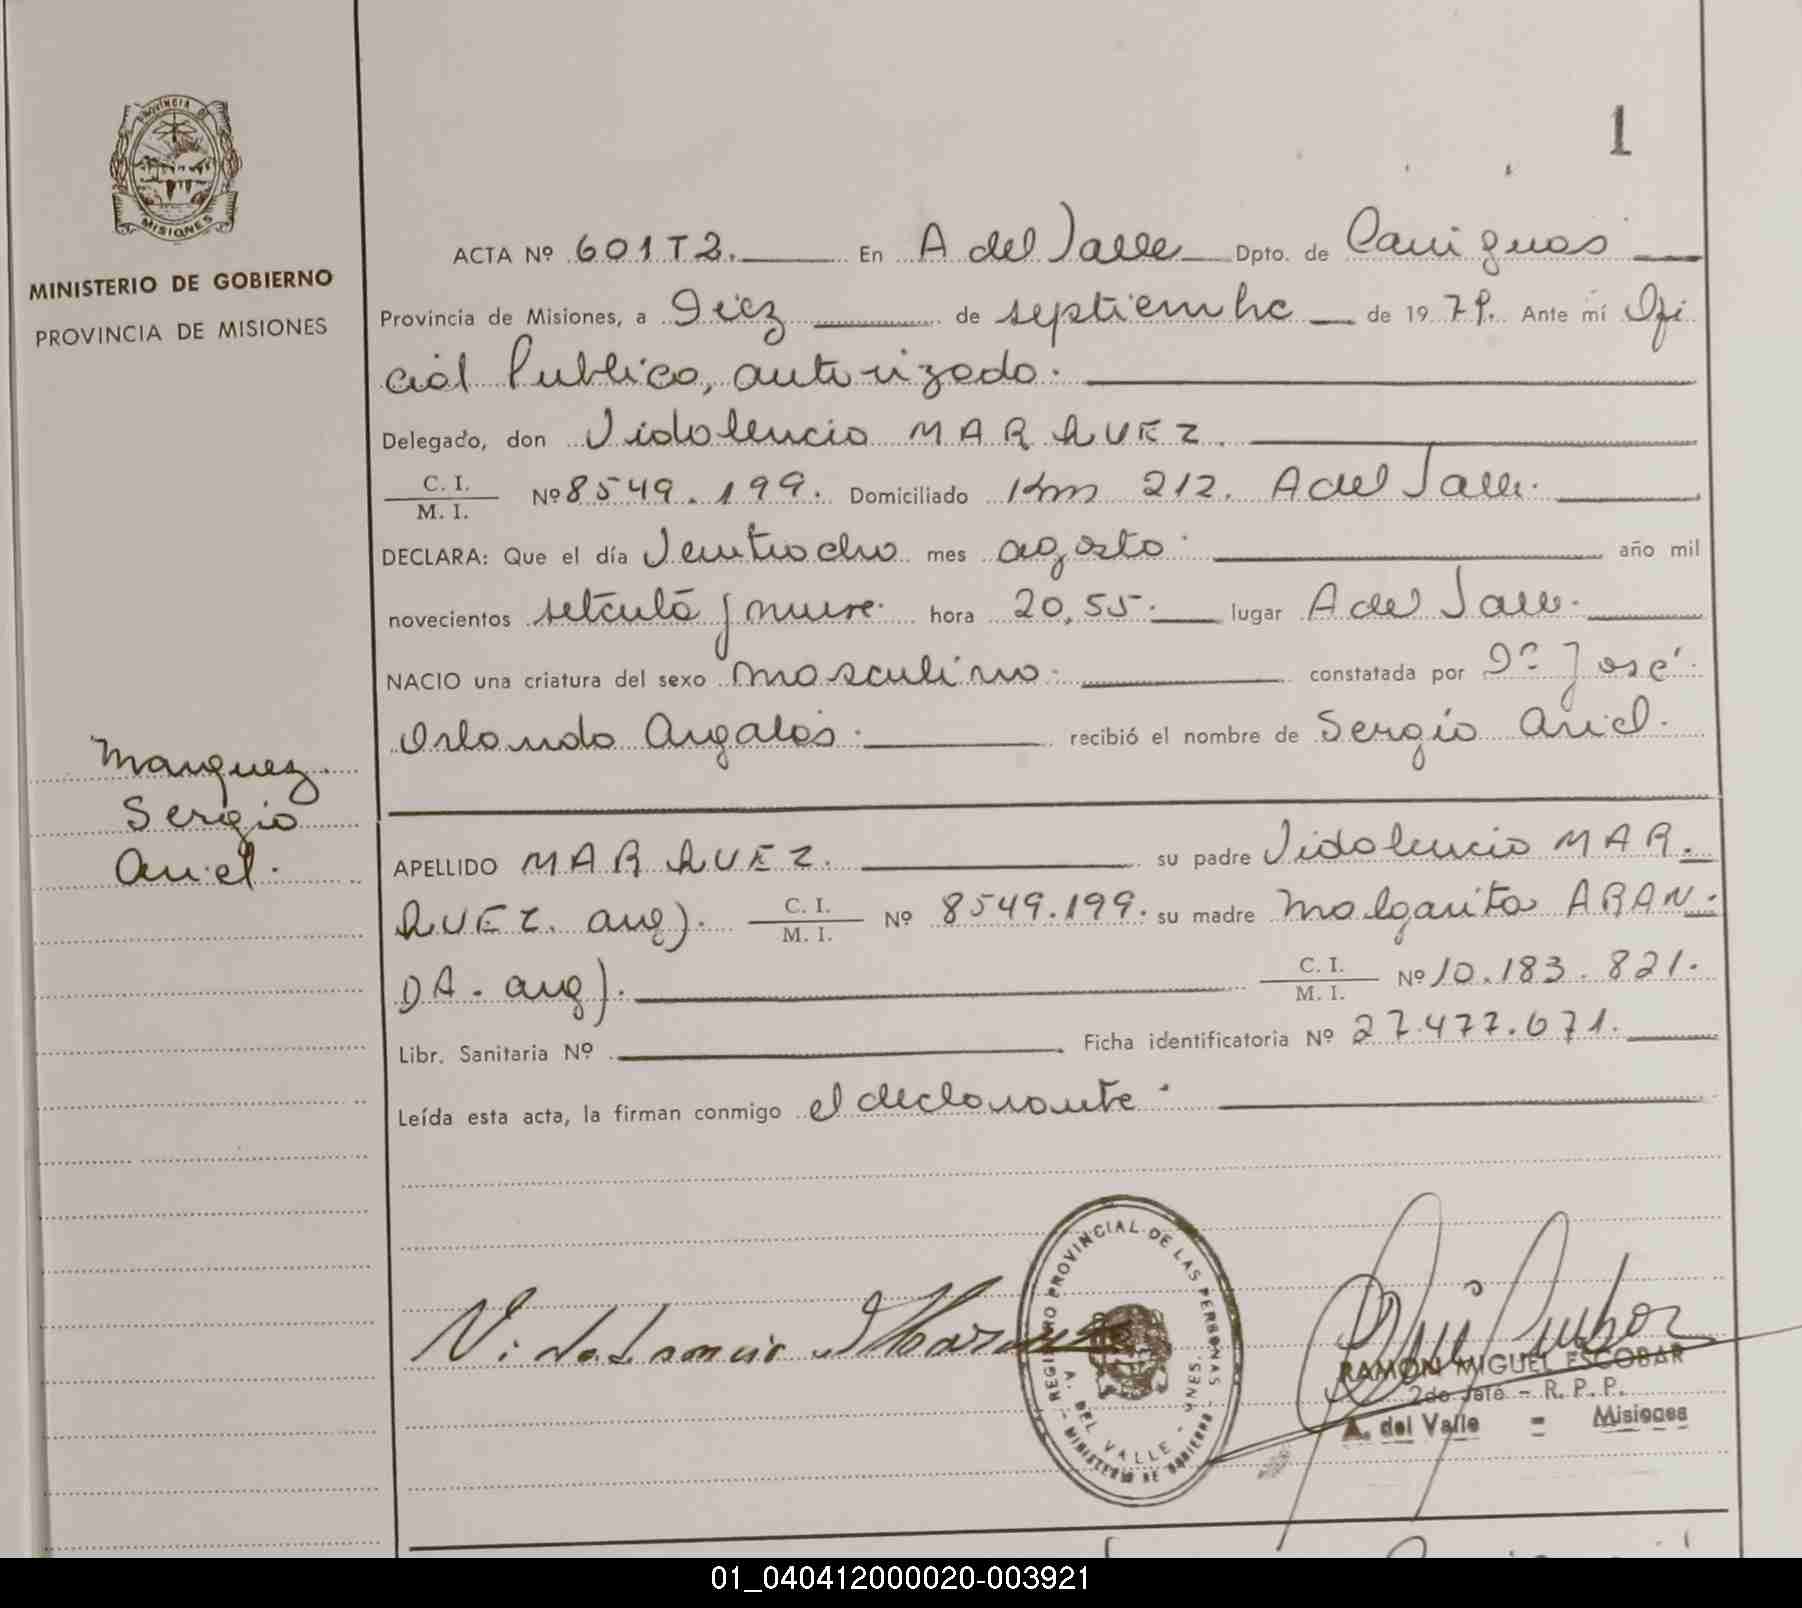 1
PROVINCIA DE
MISIONES
MINISTERIO DE GOBIERNO
PROVINCIA DE MISIONES
ACTA Nº 601T2. En A del Valle Dpto. de Cainguas
Provincia de Misiones, a Diez de septiembre de 1979. Ante mí Ofi
cial Publico, autorizado.
Delegado, don Vidolencio MARQUEZ.
C. I.
M. I. Nº 8549.199. Domiciliado Km 212. A del Valle.
DECLARA: Que el día Veintiocho mes agosto. año mil
novecientos setenta y nueve. hora 20,55. lugar A del Valle.
NACIO una criatura del sexo masculino. constatada por Dr José
Orlando recibió el nombre de Sergio Ariel.
Marquez
Sergio
Ariel.
APELLIDO MARQUEZ. su padre Vidolencio MAR.
QUEZ. arg). C. I. M. I. Nº 8549.199. su madre Malgarita ARAN.
DA. arg). C. I. M. I. Nº 10.183.821.
Libr. Sanitaria Nº Ficha identificatoria Nº 27.477.671.
Leída esta acta, la firman conmigo el declarante.
REGISTRO PROVINCIAL DE LAS PERSONAS
A. DEL VALLE - MNES.
- MINISTERIO DE GOBIERNO -
RAMON MIGUEL ESCOBAR
2do Jefe - R. P. P.
A. del Valle = Misiones
01_040412000020-003921